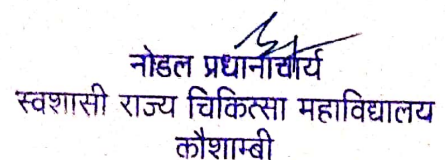 नोडल प्रधानाचार्य
स्वशासी राज्य चिकित्सा महाविद्यालय
कौशाम्बी